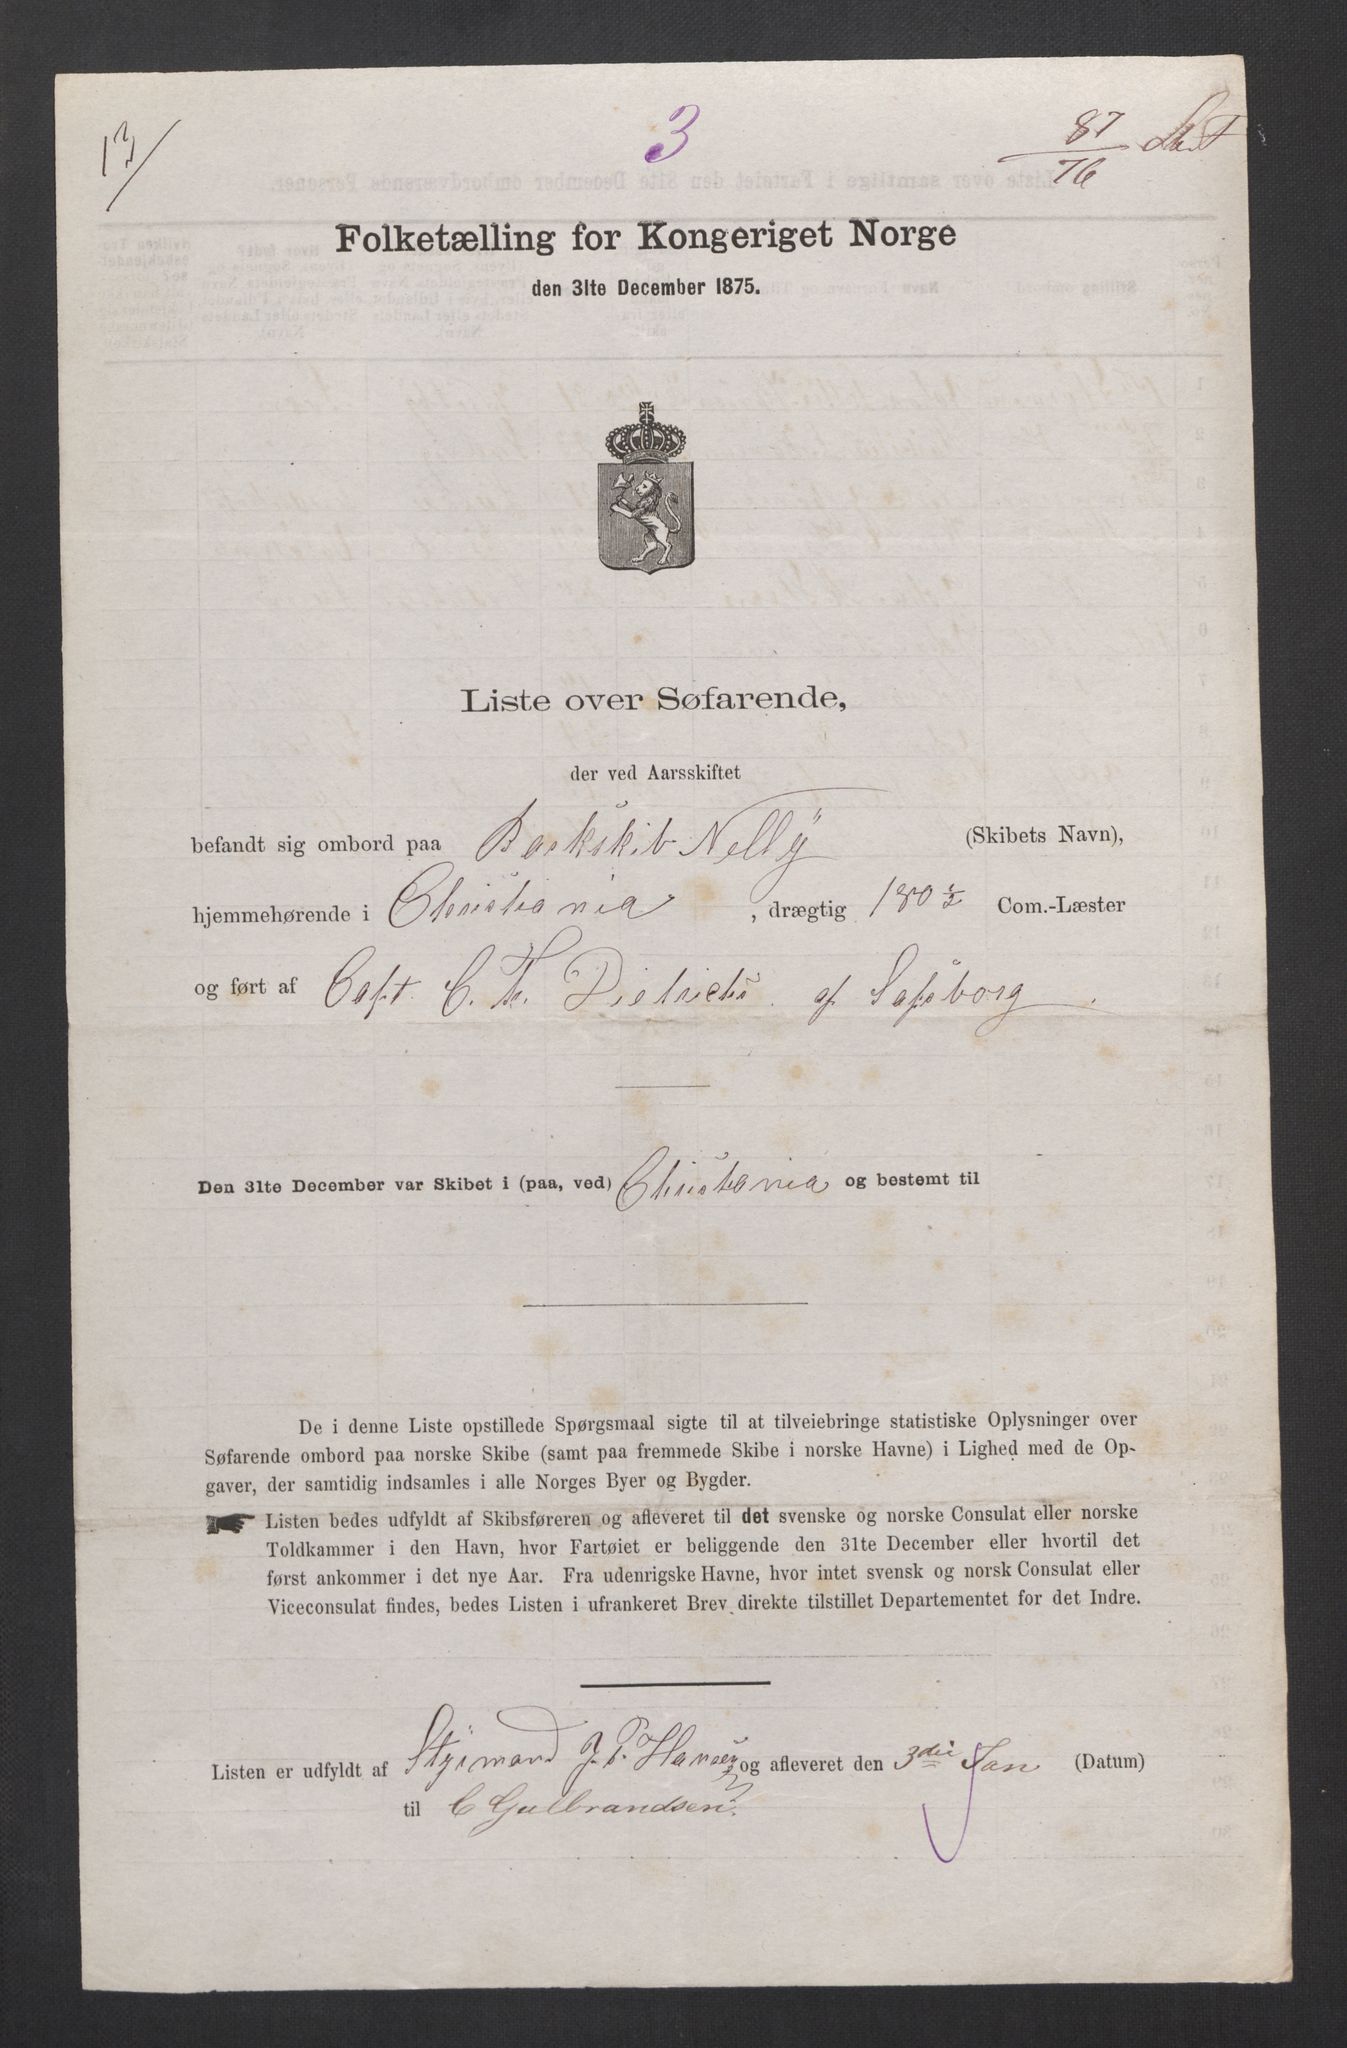 13/
3
87
76
Folketælling for Kongeriget Norge
den 31te December 1875.
Liste over Søfarende,
der ved Aarsskiftet
befandt sig ombord paa Barkskib Nelly (Skibets Navn),
hjemmehørende i Christiania, drægtig 180 ½ Com.-Læster
og ført af Capt. C. Fr. Dietrichs af Sarpsborg.
Den 31te December var Skibet i (paa, ved) Christiania og bestemt til
De i denne Liste opstillede Spørgsmaal sigte til at tilveiebringe statistiske Oplysninger over
Søfarende ombord paa norske Skibe (samt paa fremmede Skibe i norske Havne) i Lighed med de Op-
gaver, der samtidig indsamles i alle Norges Byer og Bygder.
Listen bedes udfyldt af Skibsføreren og afleveret til det svenske og norske Consulat eller norske
Toldkammer i den Havn, hvor Fartøiet er beliggende den 31te December eller hvortil det
først ankommer i det nye Aar. Fra udenrigske Havne, hvor intet svensk og norsk Consulat eller
Viceconsulat findes, bedes Listen i ufrankeret Brev direkte tilstillet Departementet for det Indre.
Listen er udfyldt af Styrmand J. P. Hansen og afleveret den 3die Jan (Datum)
til C Gulbrandsen.